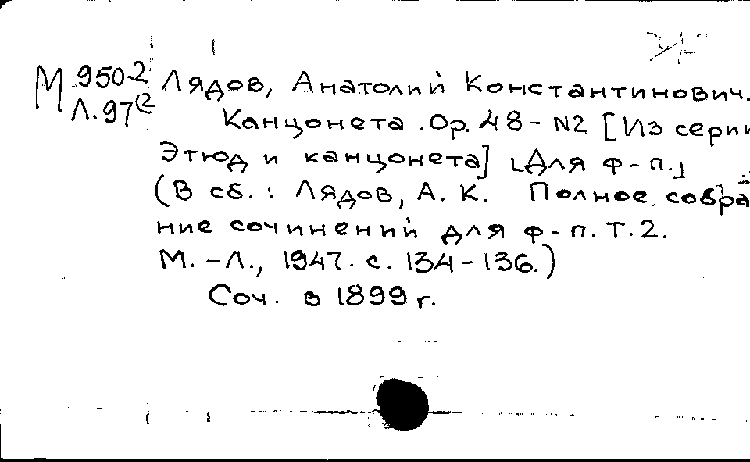 М 950-2 Лядов, Анатолий Константинович.
Л.97(2 Канцонета. Op. 48 - N2 [Из серии
Этюд и канцонета] [Для ф-п.]
(В сб.: Лядов, А. К. Полное собра
ние сочинений для ф-п. Т. 2.
М.-Л., 1947. с. 134-136.)
Соч. в 1899 г.